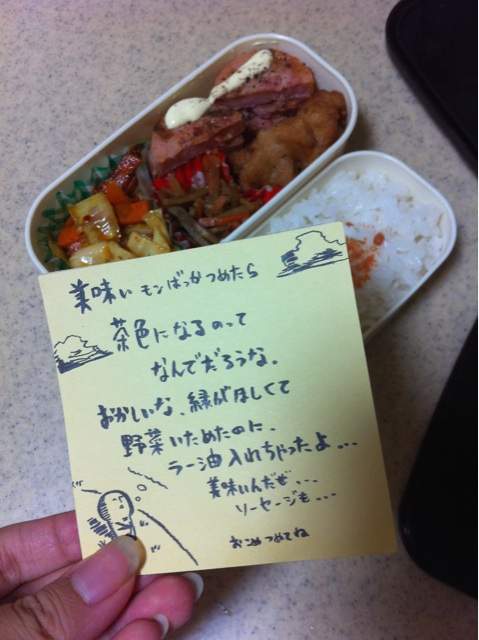 美味い モンばっかつめたら
茶色になるのって
なんでだろうな。
おかしいな、緑がほしくて
野菜いためたのに、
ラー油入れちゃったよ...
美味いんだぜ...
ソーセージも...
おこめつめてね